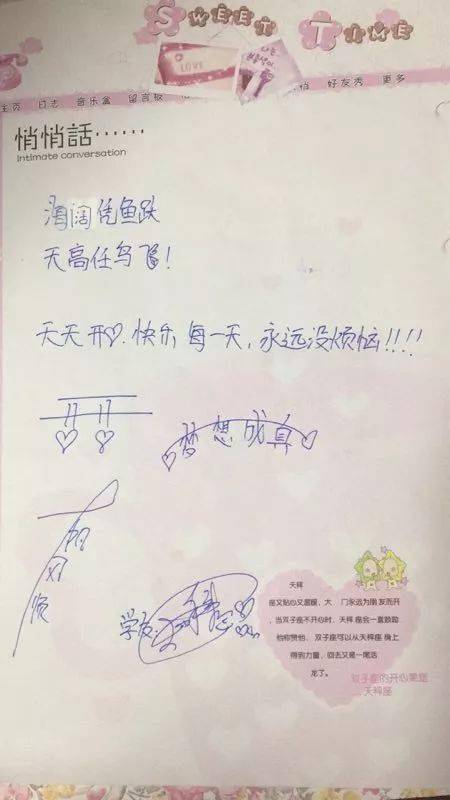 SWEET TIME
LOVE
主页 日志 音乐盒 留言板
好友秀 更多
悄悄話……
Intimate conversation
海阔凭鱼跃
天高任鸟飞!
天天开♡.快乐每一天,永远没烦恼!!!!
开开
♡♡
梦想成真
一帆风顺
学友:
天秤
座又贴心又温暖、大 门永远为朋友而开
,当双子座不开心时、天秤座会一直鼓励
他称赞他、双子座可以从天秤座身上
得到力量、回去又是一尾活
龙了。
双子座的开心果座
... 天秤座